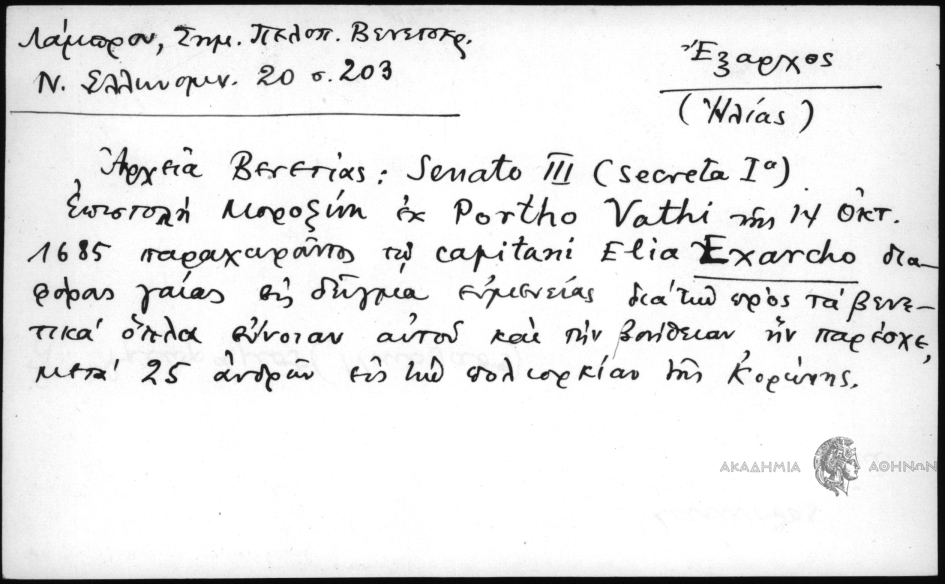 Λάμπρου, Σημ. Πελοπ. Βενετοκρ.
Ν. Ελληνομν. 20 σ. 203
Ἔξαρχος
(Ἠλίας)
Ἀρχεῖα Βενετίας: Senato III (secreta Iª)
Ἐπιστολὴ Μοροζίνη ἐκ Portho Vathi τῆς 14 Ὀκτ.
1685 παραχωρῶντος τῷ capitani Elia Exarcho δια-
φόρας γαίας εἰς δεῖγμα εὐμενείας διὰ τὴν πρὸς τὰ βενε-
τικὰ ὅπλα εὔνοιαν αὐτοῦ καὶ τὴν βοήθειαν ἣν παρέσχε,
μετὰ 25 ἀνδρῶν εἰς τὴν πολιορκίαν τῆς Κορώνης.
ΑΚΑΔΗΜΙΑ ΑΘΗΝΩΝ